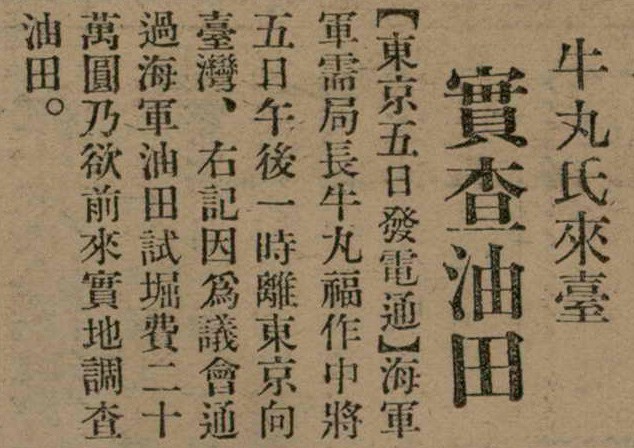 牛丸氏來臺
實查油田
【東京五日發電通】海軍
軍需局長牛丸福作中將
五日午後一時離東京向
臺灣、右記因爲議會通
過海軍油田試堀費二十
萬圓乃欲前來實地調查
油田。